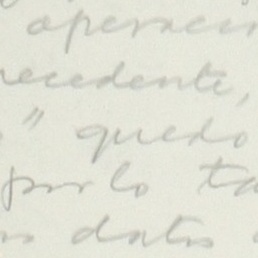 operaci
recedente,
" quedo
por lo ta
datos